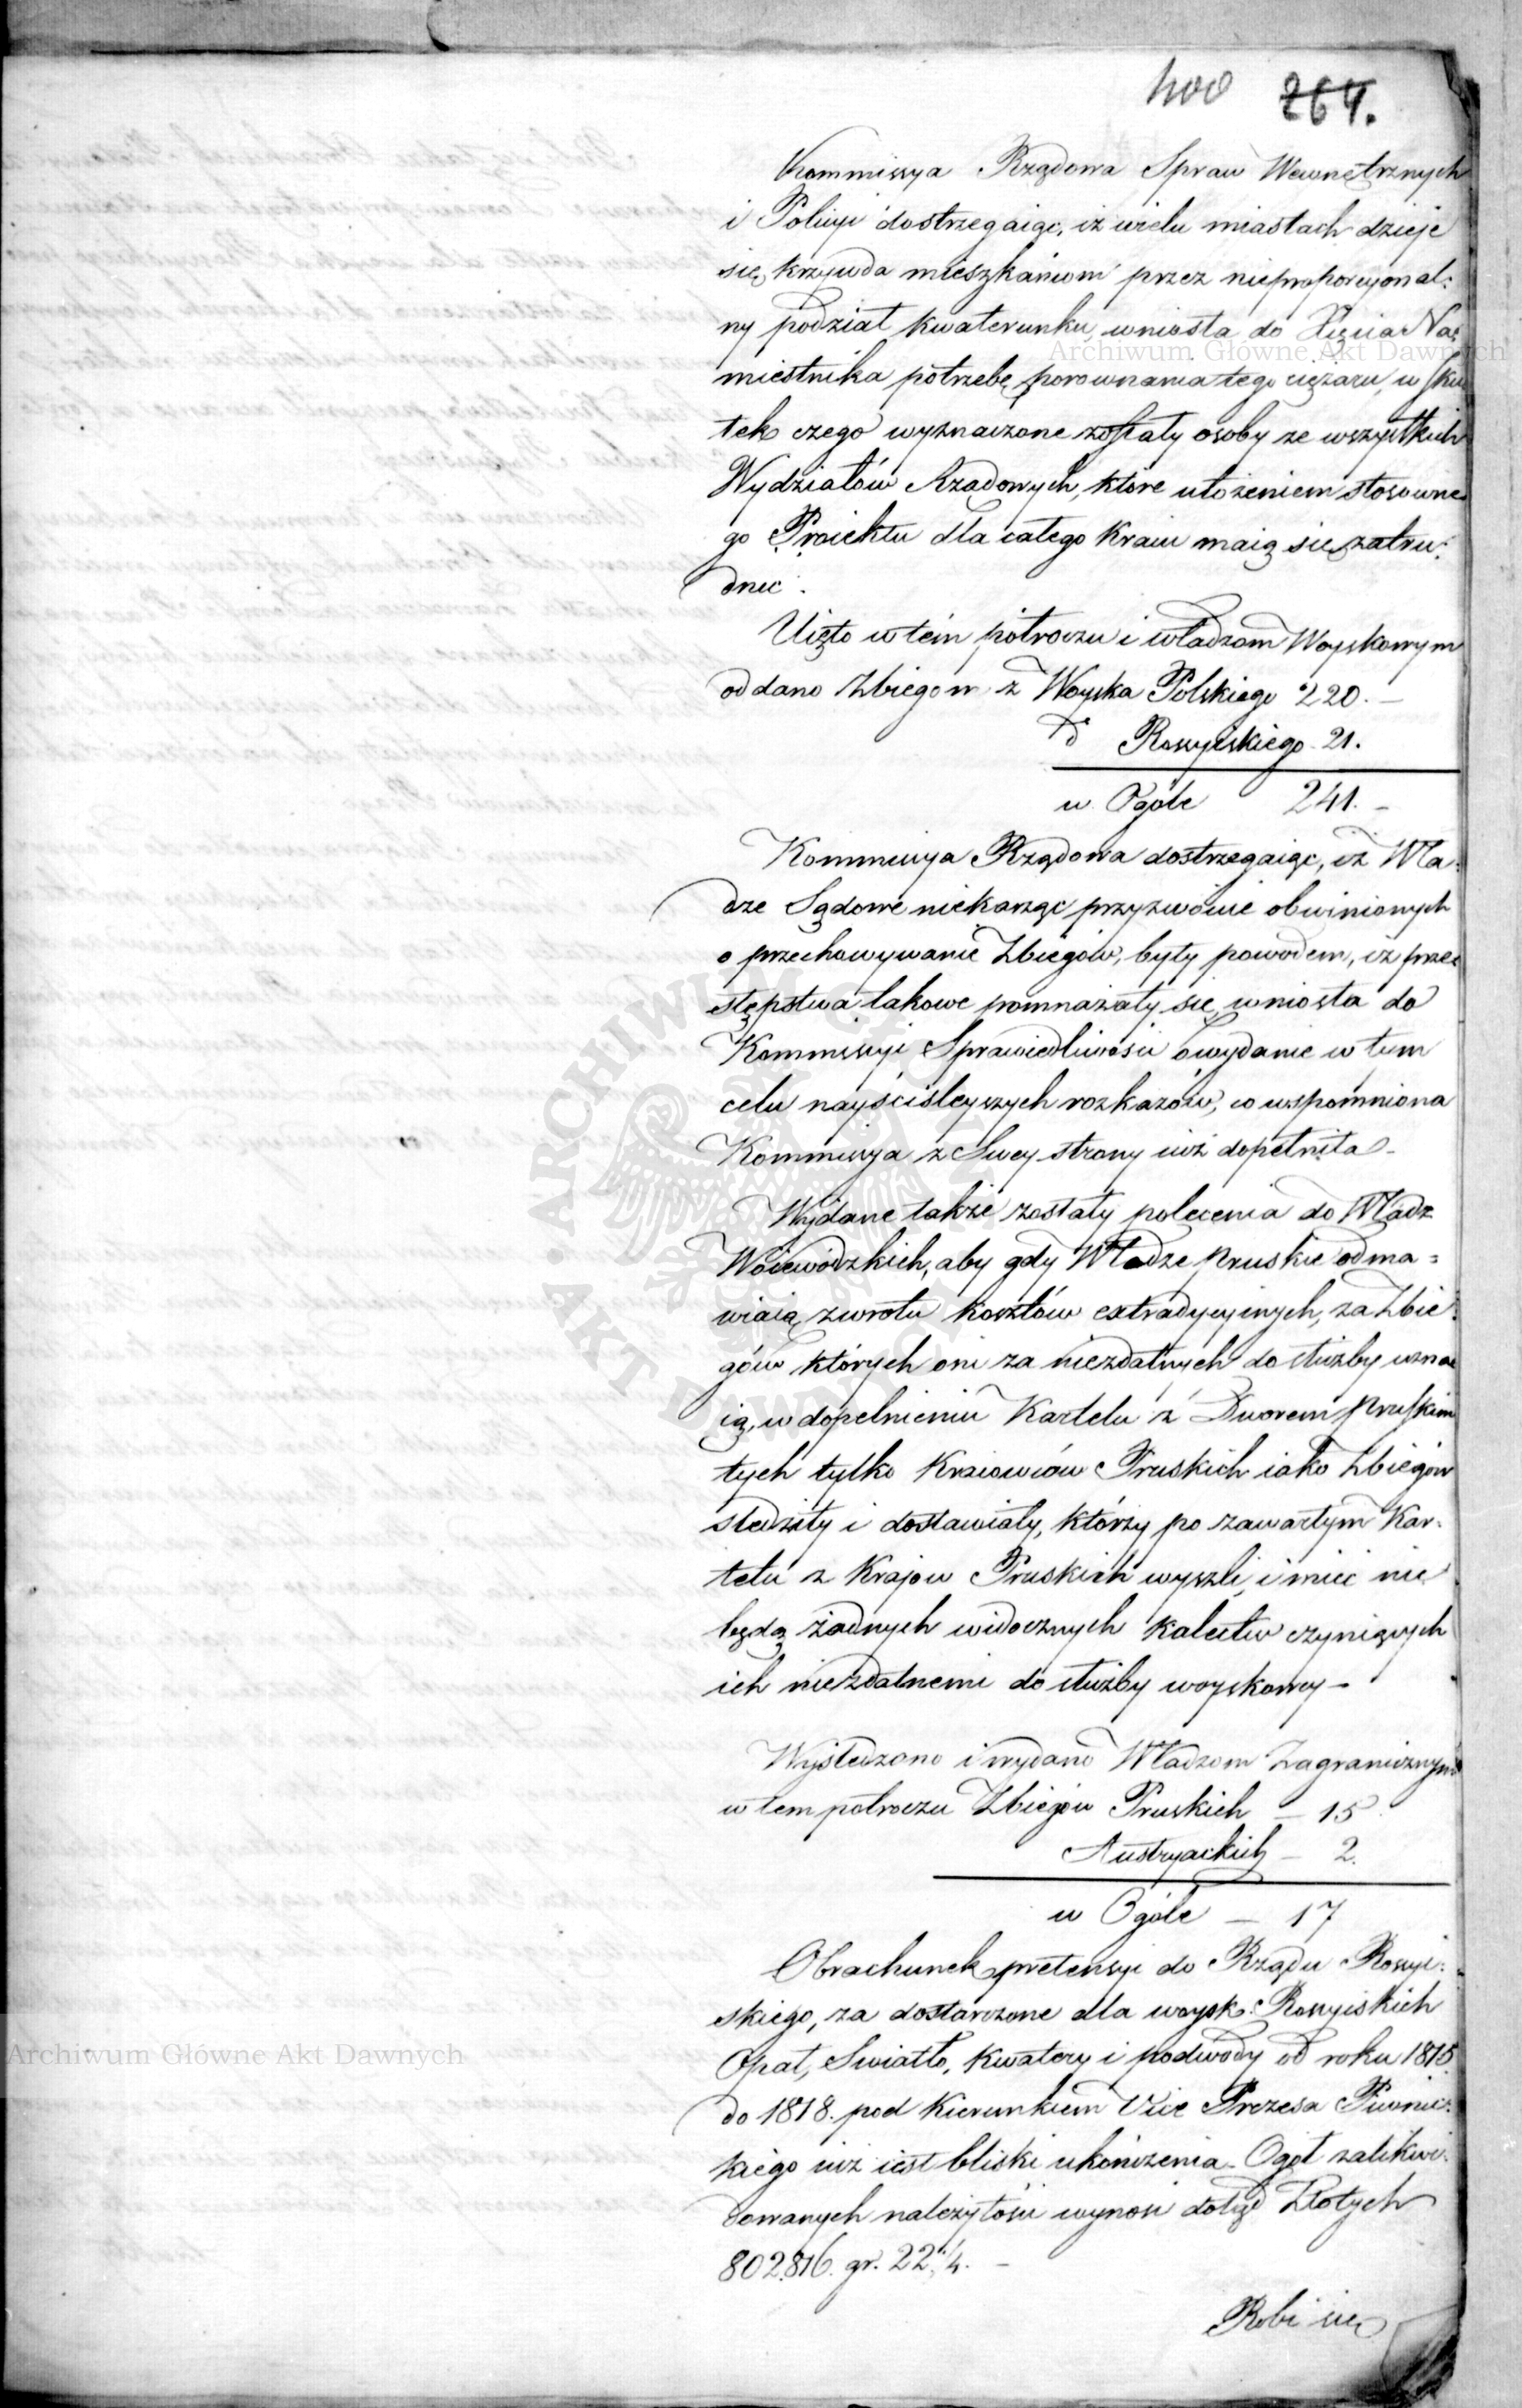 400 264.
Kommissya Rządowa Spraw Wewnętrznych
i Policyi dostrzegaiąc, iż wielu miastach dzieje
się krzywda mieszkańcom przez nieproporcyonal:
ny podział kwaterunku, wniosła do Xięcia Na:
miestnika potrzebę porownania tego ciężaru, w sku
tek czego wyznaczone zostały osoby ze wszystkich
Wydziałów Rządowych, które ułożeniem stosowne
go Proiektu dla całego Kraiu maią się zatru:
dnić.
Uięto w tém półroczu i władzom Woyskowym
oddano Zbiegow z Woyska Polskiego 220. —
d Rossyiskiego 21.
w Ogóle 241. —
Kommissya Rządowa dostrzegaiąc, iż Wła:
dze Sądowe niekarząc przyzwoicie obwinionych
o przechowywanie Zbiegów, były powodem, iż prze
stępstwa takowe pomnażały się, wniosła do
Kommissyi Sprawiedliwości o wydanie w tym
celu nayściśleyszych rozkazów, co wspomniona
Kommissya z Swey strony iuż dopełniła —
Wydane także zostały polecenia do Władz
Woiewódzkich, aby gdy Władze Pruskie odma=
wiaią zwrotu kosztów extradycyinych, za Zbie:
gów których oni za niezdatnych do służby uzna
ią, w dopełnieniu Kartelu z Dworem Pruskim
tych tylko Kraiowców Pruskich iako Zbiegów
śledziły i dostawiały, którzy po zawartym Kar:
telu z Krajow Pruskich wyszli, i mieć nie
będą żadnych widocznych kalectw czyniących
ich niezdatnemi do służby woyskowey —
Wyśledzono i wydano Władzom Zagranicznym
w tem półroczu Zbiegów Pruskich — 15
Austryackich — 2.
w Ogóle — 17
Obrachunek pretensyi do Rządu Rossyi:
skiego, za dostarczone dla woysk Rossyiskich
Opał, Światło, Kwatery i podwody od roku 1815
do 1818. pod Kierunkiem Vice Prezesa Piwnic:
kiego iuż iest bliski ukończenia — Ogół zalikwi:
dowanych należytości wynosi dotąd Złotych
802816. gr. 22 1/4. —
Robi się
Archiwum Główne Akt Dawnych
Archiwum Główne Akt Dawnych